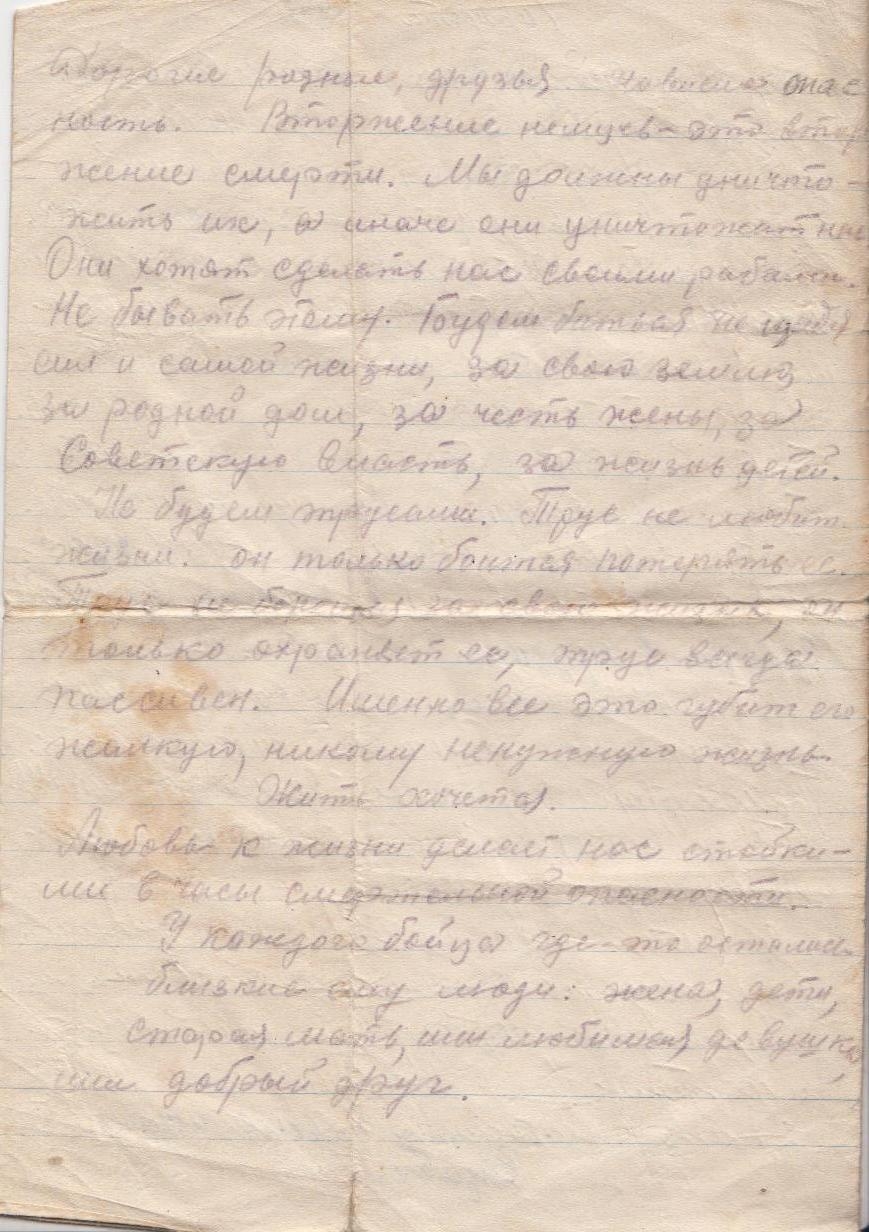 Дорогие родные, друзья нависла опас
ность. Вторжение немцев - это втор
жение смерти. Мы должны уничто-
жить их, а иначе они уничтожат нас
Они хотят сделать нас своими рабами.
Не бывать этому. Будем биться не щадя
сил и самой жизни, за свою землю,
за родной дом, за честь жены, за
Советскую власть, за жизнь детей.
Не будем трусами. Трус не любит
жизни: он только боится потерять ее.
Трус не борется за свою жизнь, он
только охраняет ее, трус всегда
пассивен. Именно все это губит его
жалкую, никому ненужную жизнь.
Жить хочется.
Любовь к жизни делает нас стойки-
ми в часы смертельной опасности.
У каждого бойца где-то остались
близкие ему люди: жена, дети,
старая мать, или любимая девушка,
или добрый друг.